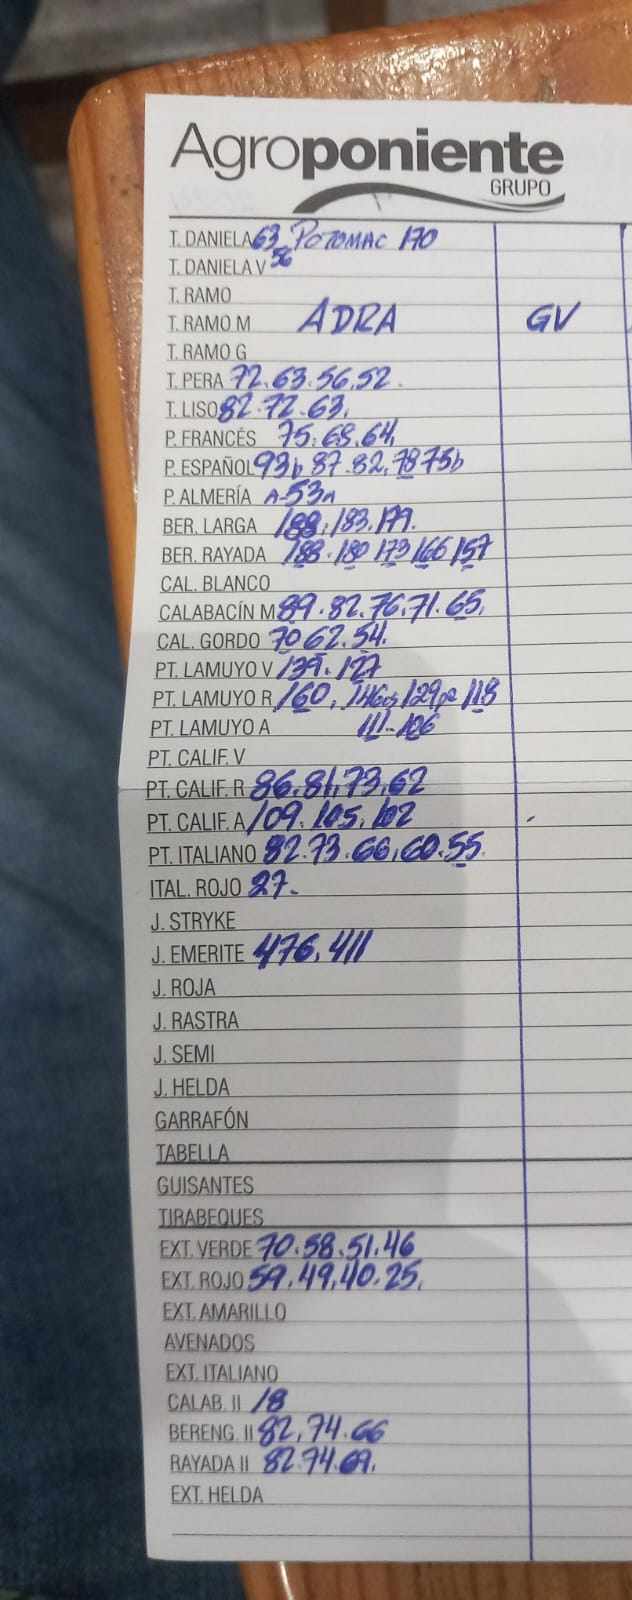 Agroponiente
GRUPO
T. DANIELA 63 POTOMAC 170
T. DANIELA V 56
T. RAMO
T. RAMO M ADRA GV
T. RAMO G
T. PERA 72.63.56.52.
T. LISO 82.72.63.
P. FRANCÉS 75.68.64.
P. ESPAÑOL 93b 87.82.78 75b
P. ALMERÍA A-53a
BER. LARGA 188.183.179.
BER. RAYADA 188.180 173 166 157
CAL. BLANCO
CALABACÍN M 89.82.76.71.65.
CAL. GORDO 70 62.54.
PT. LAMUYO V 139.127
PT. LAMUYO R 160. 146 129 118
PT. LAMUYO A 111-106
PT. CALIF. V
PT. CALIF. R 86.81.73.62
PT. CALIF. A 109.105.102
PT. ITALIANO 82.73.66.60.55.
ITAL. ROJO 27-
J. STRYKE
J. EMERITE 476.411
J. ROJA
J. RASTRA
J. SEMI
J. HELDA
GARRAFÓN
TABELLA
GUISANTES
TIRABEQUES
EXT. VERDE 70.58.51.46
EXT. ROJO 59.49.40.25.
EXT. AMARILLO
AVENADOS
EXT. ITALIANO
CALAB. II 18
BERENG. II 82.74.66
RAYADA II 82.74.69.
EXT. HELDA